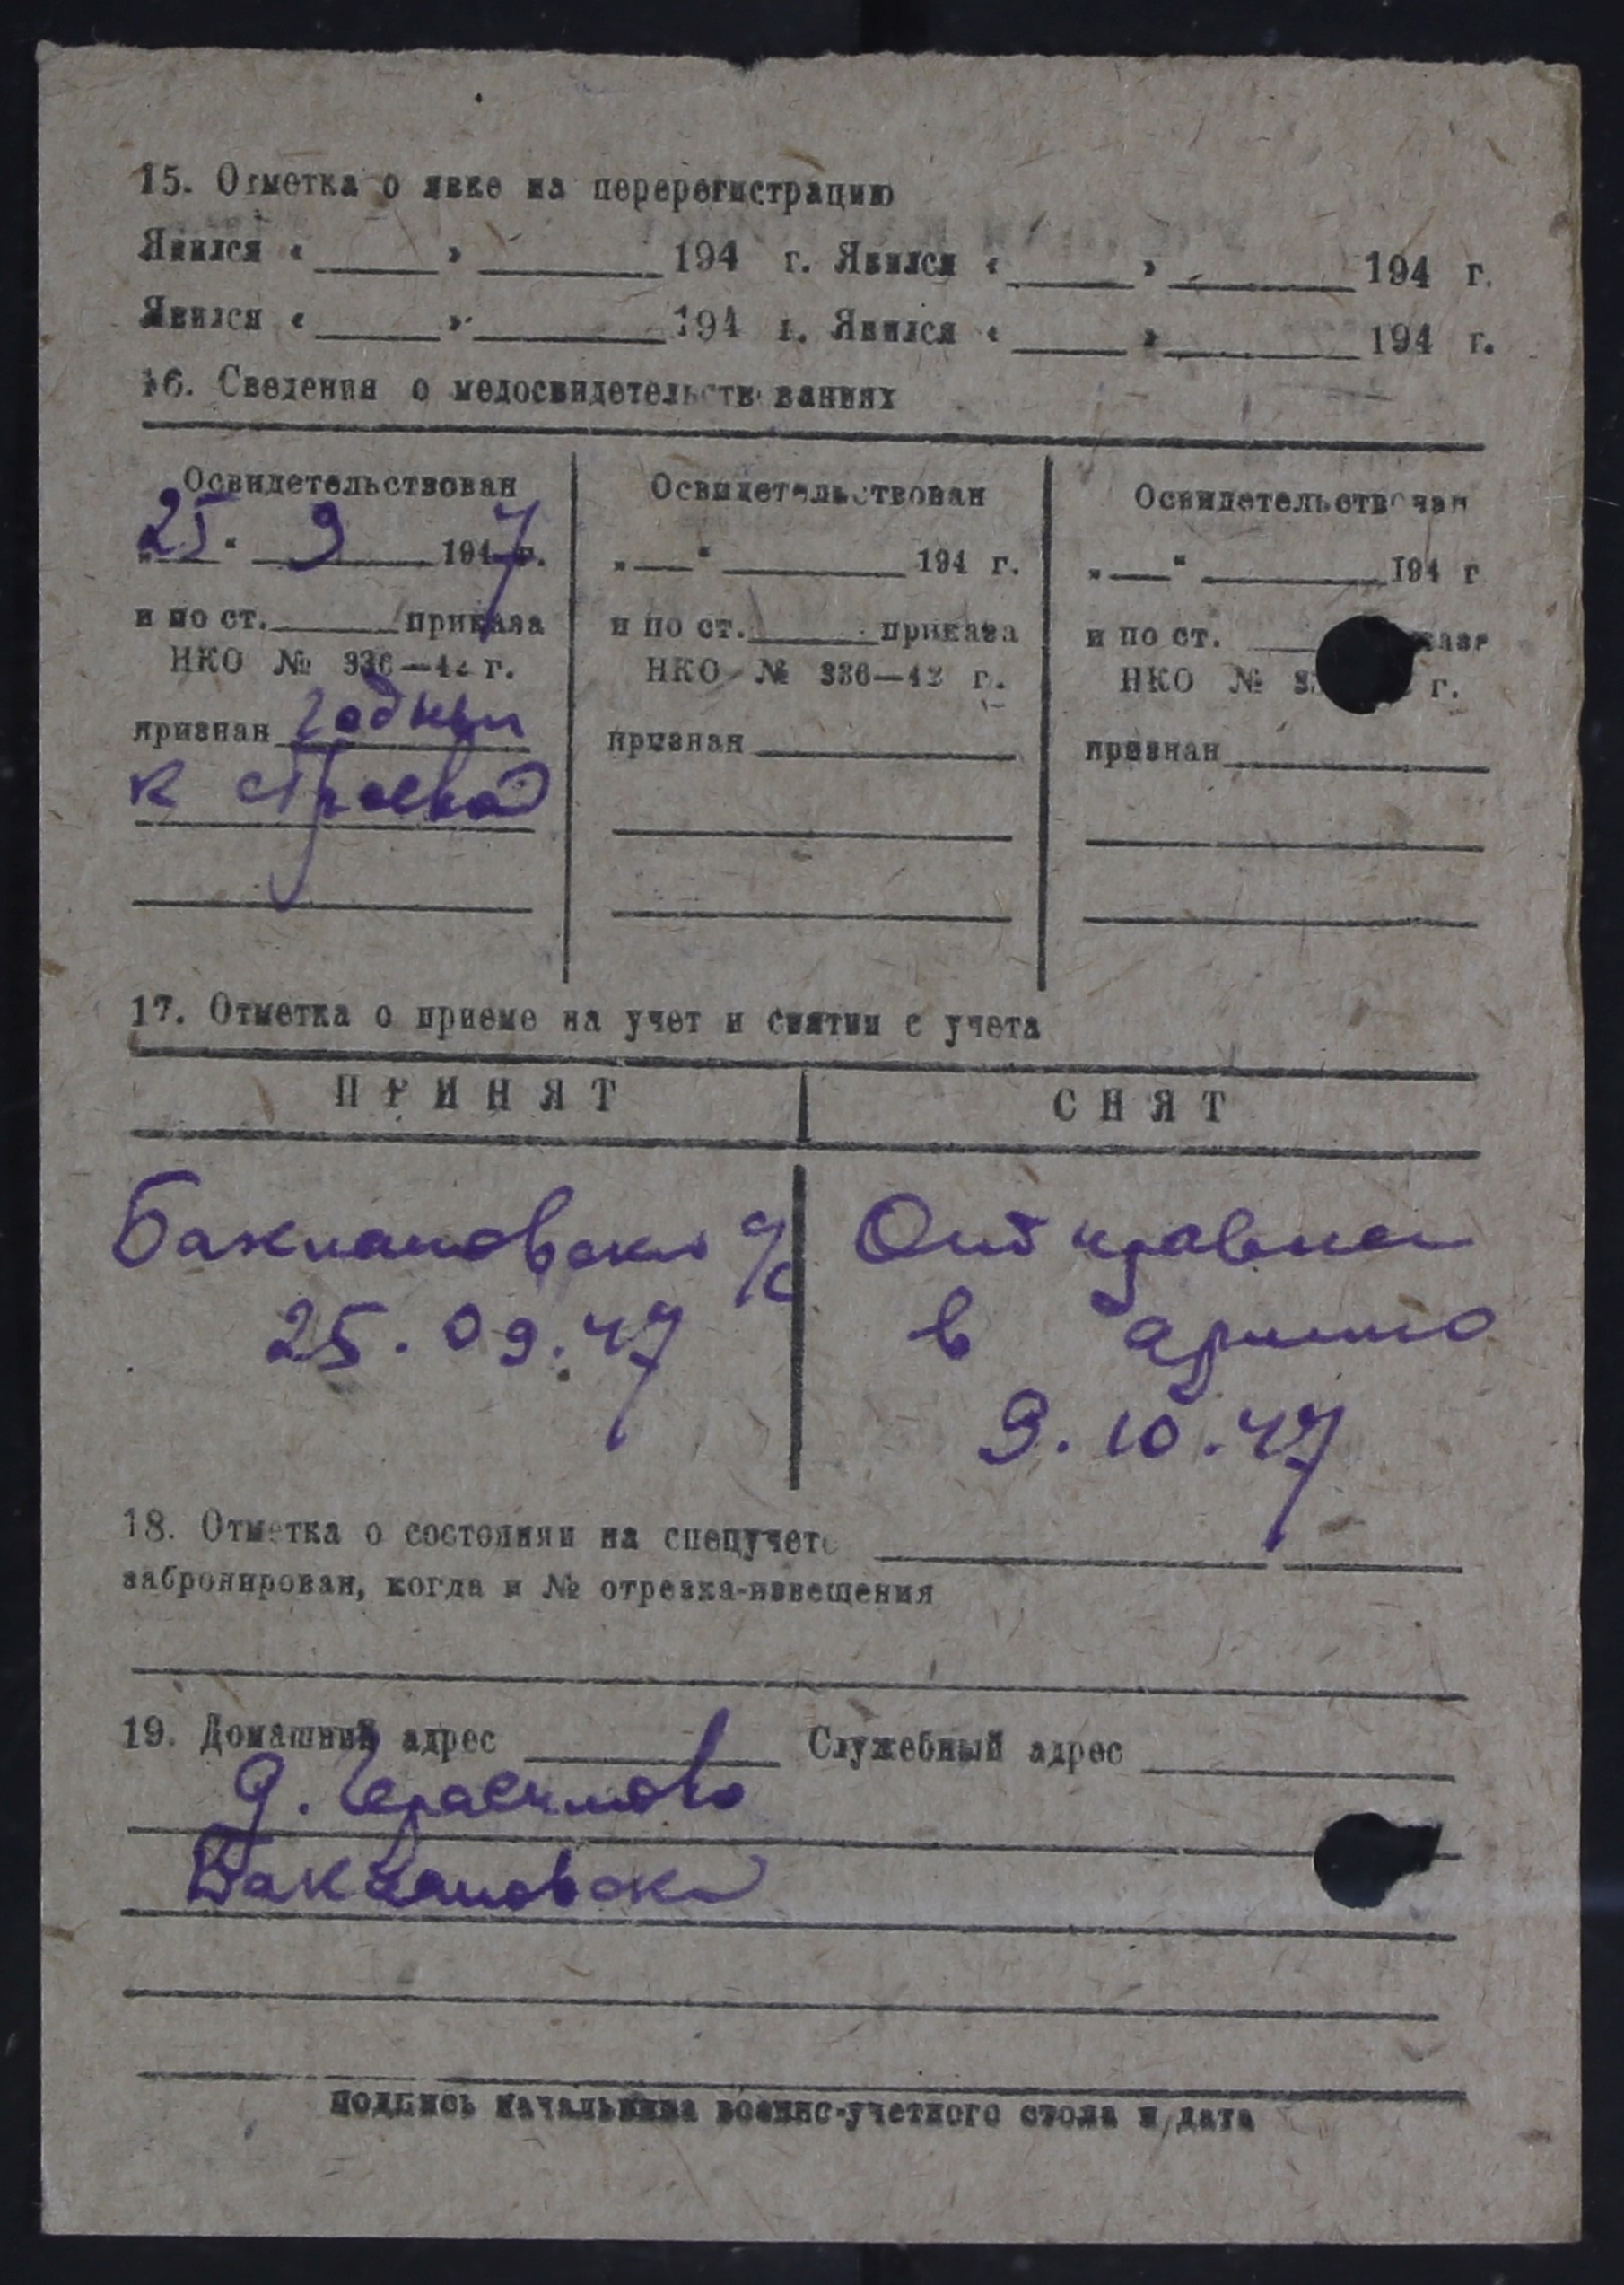 15. Отметка о явке на перерегистрацию
Явился « » 194 г. Явился « » 194 г.
Явился « » 194 г. Явился « » 194 г.
16. Сведения о медосвидетельствованиях
Освидетельствован Освидетельствован Освидетельствован
25. 9 1947 г. „ “ 194 г. „ “ 194 г
и по ст. приказа и по ст. приказа и по ст.
НКО № 336—42 г. НКО № 336—42 г. НКО № г.
признан годным признан признан
к строевой
17. Отметка о приеме на учет и снятии с учета
ПРИНЯТ СНЯТ
с/с Отправлен
25.09.47 в армию
9.10.47
18. Отметка о состоянии на спецучете
забронирован, когда и № отрезка-извещения
19. Домашний адрес Служебный адрес
д. Герасимово
подпись начальника военно-учетного стола и дата